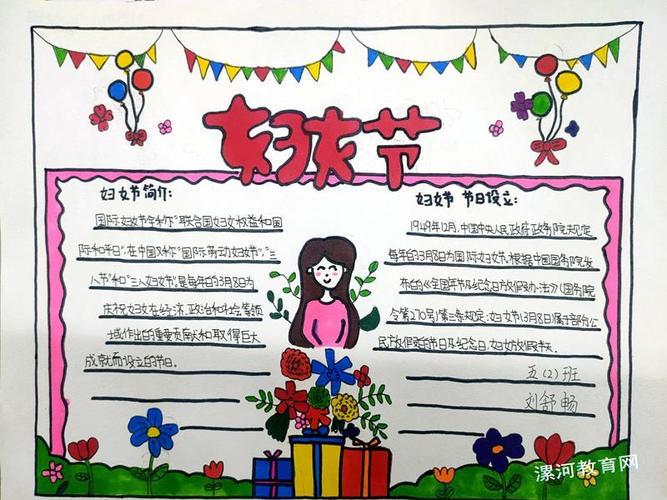 妇女节
妇女节简介:
国际妇女节全称"联合国妇女权益和国
际和平日",在中国又称"国际劳动妇女节"、"三
八节"和"三八妇女节",是每年的3月8日为
庆祝妇女在经济、政治和社会等领
域作出的重要贡献和取得巨大
成就而设立的节日。
妇女节 节日设立:
1949年12月,中国中央人民政府政务院规定
每年的3月8日为国际妇女节。根据中国国务院发
布的《全国年节及纪念日放假办法》(国务院
令第270号)第三条规定:妇女节(3月8日)属于部分公
民放假的节日及纪念日,妇女放假半天。
五(2)班
刘舒畅
漯河教育网